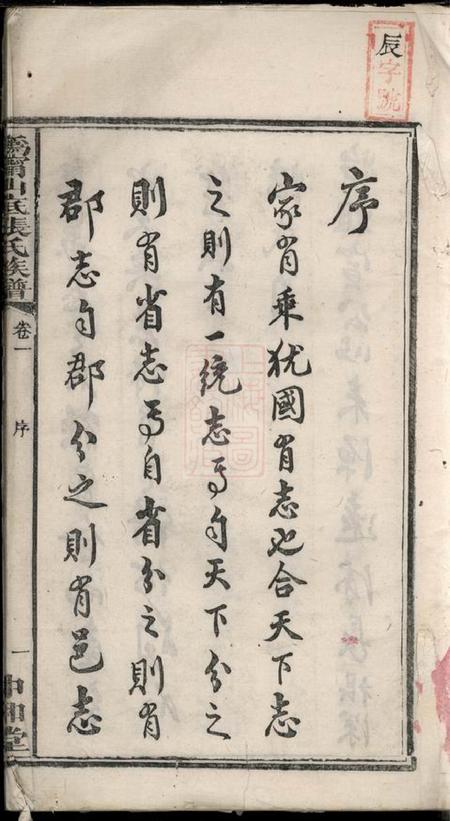 辰字號
序
家有乘犹國有志也合天下志
之則有一统志焉自天下分之
則有省志焉自省分之則有
郡志自郡分之則有邑志
山底張氏族譜
卷一
序
一
中和堂